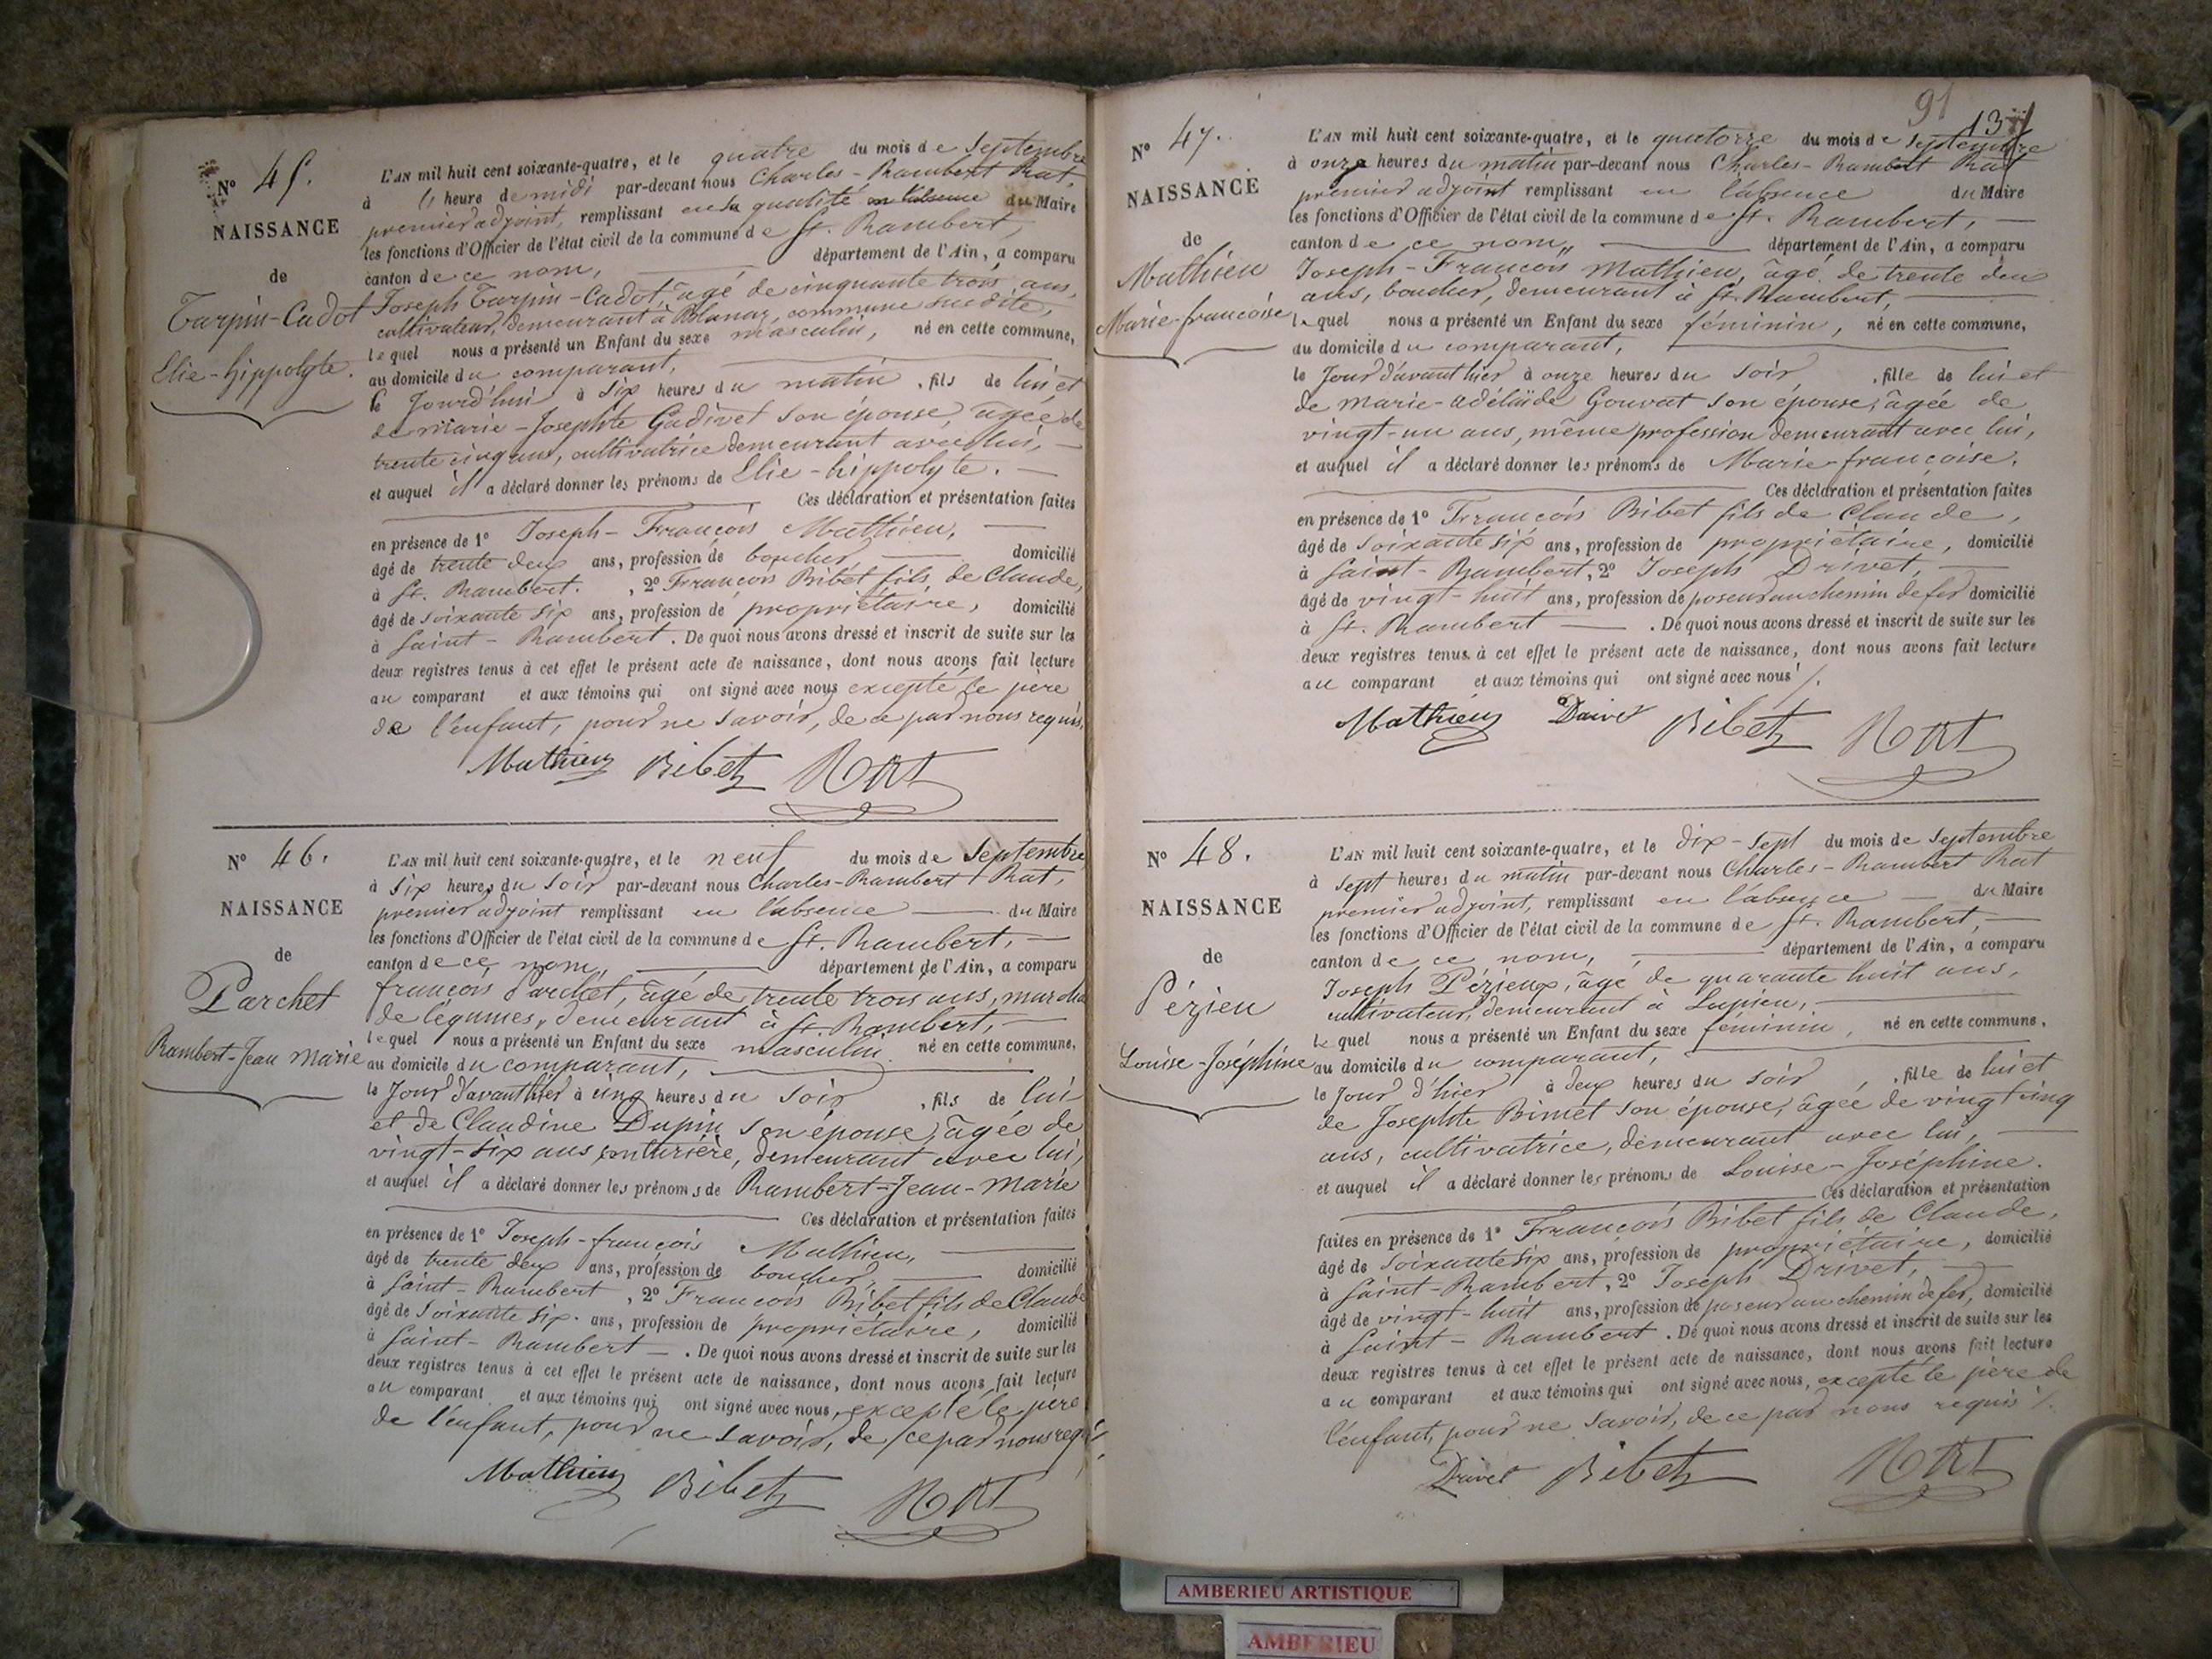 N° 45.
NAISSANCE
de
Turpin-Cadot
Elie-hippolyte.
L'AN mil huit cent soixante-quatre, et le quatre du mois de Septembre
à heure de midi par-devant nous Charles-Rambert Rat,
premier adjoint, remplissant en sa qualité du Maire
les fonctions d'Officier de l'état civil de la commune de St. Rambert,
canton de ce nom, département de l'Ain, a comparu
Joseph Turpin-Cadot, âgé de cinquante trois ans,
cultivateur, demeurant à Blanaz, commune susdite,
lequel nous a présenté un Enfant du sexe masculin, né en cette commune,
au domicile du comparant,
le Jourd'hui à six heures du matin, fils de lui et
de Marie-Josephte Gadivet son épouse, âgée de
trente cinq ans, cultivatrice demeurant avec lui,
et auquel il a déclaré donner les prénoms de Elie-hippolyte.
Ces déclaration et présentation faites
en présence de 1° Joseph-François Mathieu,
âgé de trente deux ans, profession de boucher, domicilié
à St. Rambert. , 2° François Bibet fils de Claude,
âgé de soixante six ans, profession de propriétaire, domicilié
à Saint-Rambert. De quoi nous avons dressé et inscrit de suite sur les
deux registres tenus à cet effet le présent acte de naissance, dont nous avons fait lecture
au comparant et aux témoins qui ont signé avec nous excepté le père
de l'enfant, pour ne savoir, de ce par nous requis,
Mathieu Bibet RAT
N° 46.
NAISSANCE
de
Parchet
Rambert-Jean Marie
L'AN mil huit cent soixante-quatre, et le neuf du mois de Septembre
à six heures du soir par-devant nous Charles-Rambert Rat,
premier adjoint remplissant en l'absence du Maire
les fonctions d'Officier de l'état civil de la commune de St. Rambert,
canton de ce nom, département de l'Ain, a comparu
françois Parchet, âgé de trente trois ans, marchd
de légumes, demeurant à St. Rambert,
lequel nous a présenté un Enfant du sexe masculin né en cette commune,
au domicile du comparant,
le Jour d'avanthier à cinq heures du soir, fils de lui
et de Claudine Dupin son épouse, âgée de
vingt-six ans, couturière, demeurant avec lui,
et auquel il a déclaré donner les prénoms de Rambert-Jean-Marie
Ces déclaration et présentation faites
en présence de 1° Joseph-françois Mathieu,
âgé de trente deux ans, profession de boucher, domicilié
à Saint-Rambert, 2° François Bibet fils de Claude
âgé de soixante six. ans, profession de propriétaire, domicilié
à Saint-Rambert. De quoi nous avons dressé et inscrit de suite sur les
deux registres tenus à cet effet le présent acte de naissance, dont nous avons fait lecture
au comparant et aux témoins qui ont signé avec nous, excepté le père
de l'enfant, pour ne savoir, de ce par nous
Mathieu Bibet RAT
91
13
N° 47.
NAISSANCE
de
Mathieu
Marie-françoise
L'AN mil huit cent soixante-quatre, et le quatorze du mois de septembre
à onze heures du matin par-devant nous Charles-Rambert Rat
premier adjoint remplissant en l'absence du Maire
les fonctions d'Officier de l'état civil de la commune de St. Rambert,
canton de ce nom, département de l'Ain, a comparu
Joseph-François Mathieu, âgé de trente deux
ans, boucher, demeurant à St. Rambert,
lequel nous a présenté un Enfant du sexe féminin, né en cette commune,
au domicile du comparant,
le Jour d'avant hier à onze heures du soir, fille de lui et
de Marie-Adélaïde Gouvat son épouse, âgée de
vingt-un ans, même profession demeurant avec lui,
et auquel il a déclaré donner les prénoms de Marie-françoise.
Ces déclaration et présentation faites
en présence de 1° François Bibet fils de Claude,
âgé de soixante six ans, profession de propriétaire, domicilié
à Saint-Rambert, 2° Joseph Drivet,
âgé de vingt-huit ans, profession de poseur au chemin de fer domicilié
à St. Rambert. De quoi nous avons dressé et inscrit de suite sur les
deux registres tenus à cet effet le présent acte de naissance, dont nous avons fait lecture
au comparant et aux témoins qui ont signé avec nous
Mathieu Drivet Bibet RAT
N° 48.
NAISSANCE
de
Pézieu
Louise-Joséphine
L'AN mil huit cent soixante-quatre, et le dix-sept du mois de Septembre
à sept heures du matin par-devant nous Charles-Rambert Rat
premier adjoint, remplissant en l'absence du Maire
les fonctions d'Officier de l'état civil de la commune de St. Rambert,
canton de ce nom, département de l'Ain, a comparu
Joseph Pézieux, âgé de quarante huit ans,
cultivateur, demeurant à Lupieu,
lequel nous a présenté un Enfant du sexe féminin, né en cette commune,
au domicile du comparant,
le Jour d'hier à deux heures du soir, fille de lui et
de Josephte Binet son épouse, âgée de vingt cinq
ans, cultivatrice, demeurant avec lui,
et auquel il a déclaré donner les prénoms de Louise-Joséphine.
Ces déclaration et présentation
faites en présence de 1° François Bibet fils de Claude,
âgé de soixante six ans, profession de propriétaire, domicilié
à Saint-Rambert, 2° Joseph Drivet,
âgé de vingt-huit ans, profession de poseur au chemin de fer, domicilié
à Saint-Rambert. De quoi nous avons dressé et inscrit de suite sur les
deux registres tenus à cet effet le présent acte de naissance, dont nous avons fait lecture
au comparant et aux témoins qui ont signé avec nous, excepté le père de
l'enfant, pour ne savoir, de ce par nous requis
Drivet Bibet RAT
AMBERIEU ARTISTIQUE
AMBERIEU